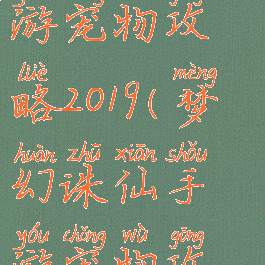 游宠物攻
lüè mèng
略2019(梦
huàn zhū xiān shǒu
幻诛仙手
yóu chǒng wù gōng
游宠物攻